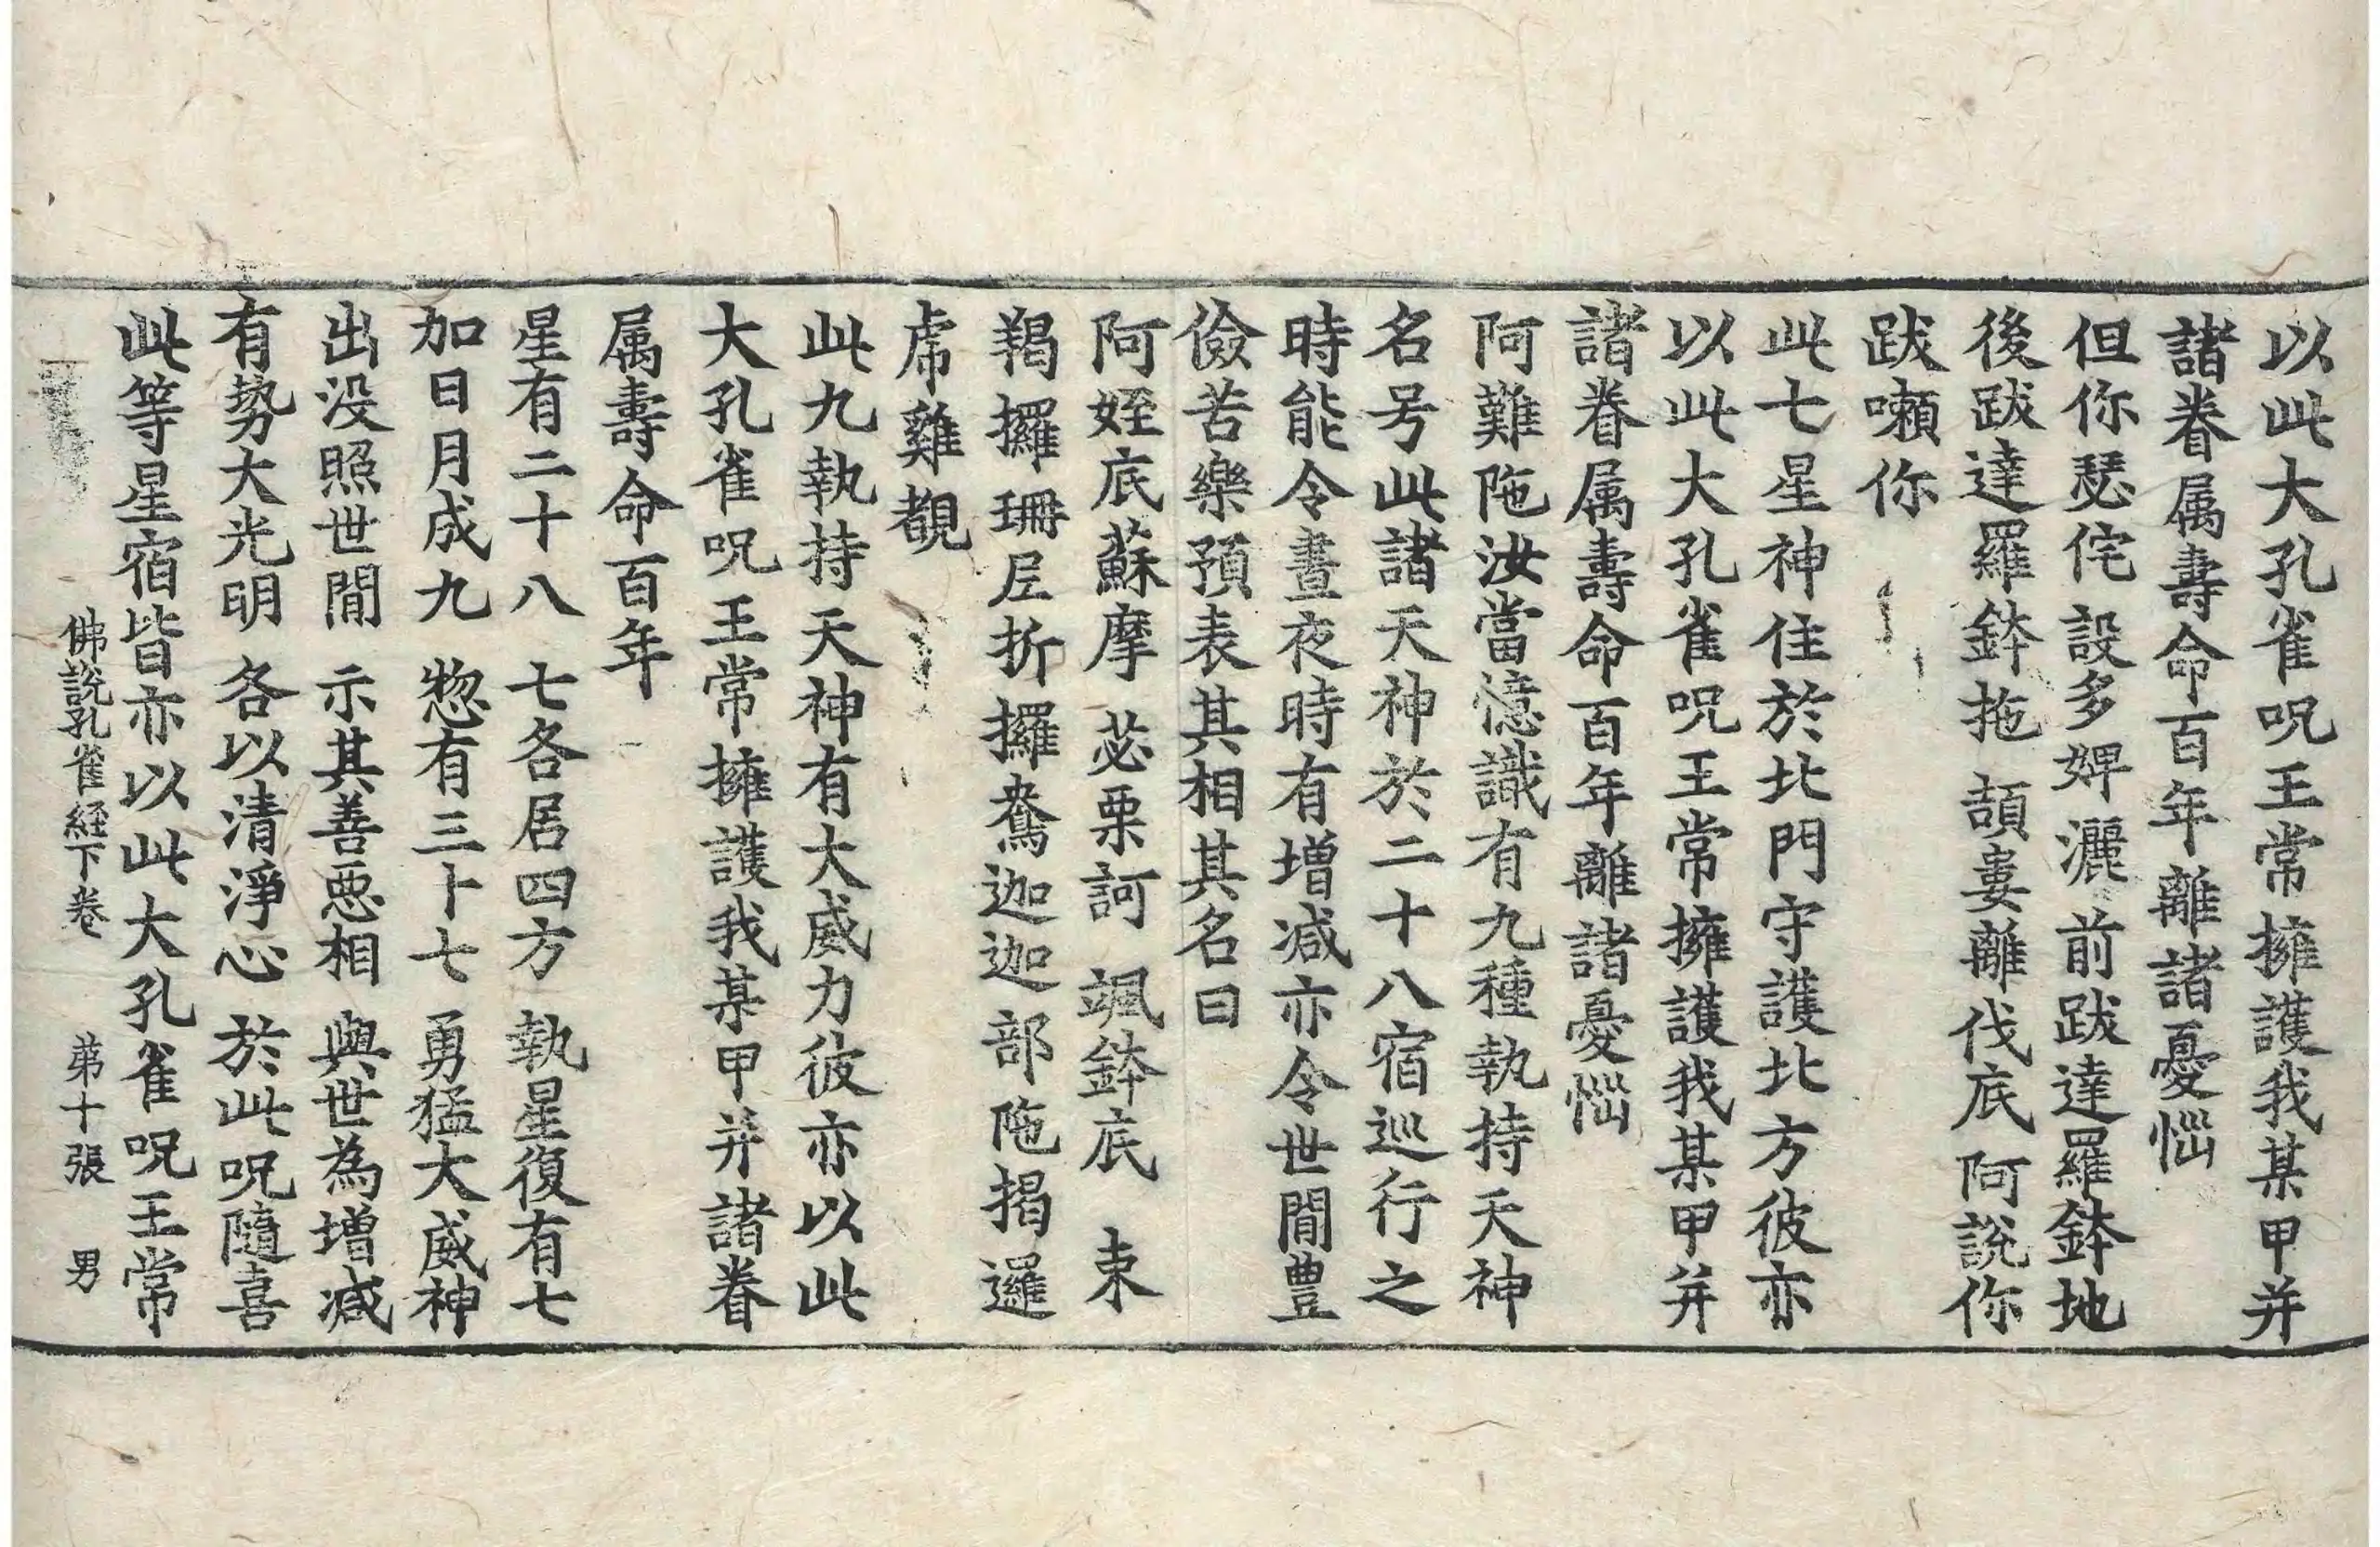 以此大孔雀呪王常擁護我某甲并
諸眷属壽命百年離諸憂惱
但你瑟侘 設多婢灑 前跋達羅鉢地
後跋達羅鉢拖 頡婁離伐底 阿說你
跋嚩你
此七星神住於北門守護北方彼亦
以此大孔雀呪王常擁護我某甲并
諸眷属壽命百年離諸憂惱
阿難陁汝當憶識有九種執持天神
名号此諸天神於二十八宿巡行之
時能令晝夜時有增減亦令世間豊
儉苦樂預表其相其名曰
阿姪底 蘇摩 苾栗訶 颯鉢底 束
羯攞 珊尼折攞 鴦迦迦 部陁 揭邏
虎 雞覩
此九執持天神有大威力彼亦以此
大孔雀呪王常擁護我某甲并諸眷
属壽命百年
星有二十八 七各居四方 執星復有七
加日月成九 惣有三十七 勇猛大威神
出没照世間 示其善惡相 與世為增減
有勢大光明 各以清淨心 於此呪隨喜
此等星宿皆亦以此大孔雀呪王常
佛說孔雀経下卷 苐十張 男